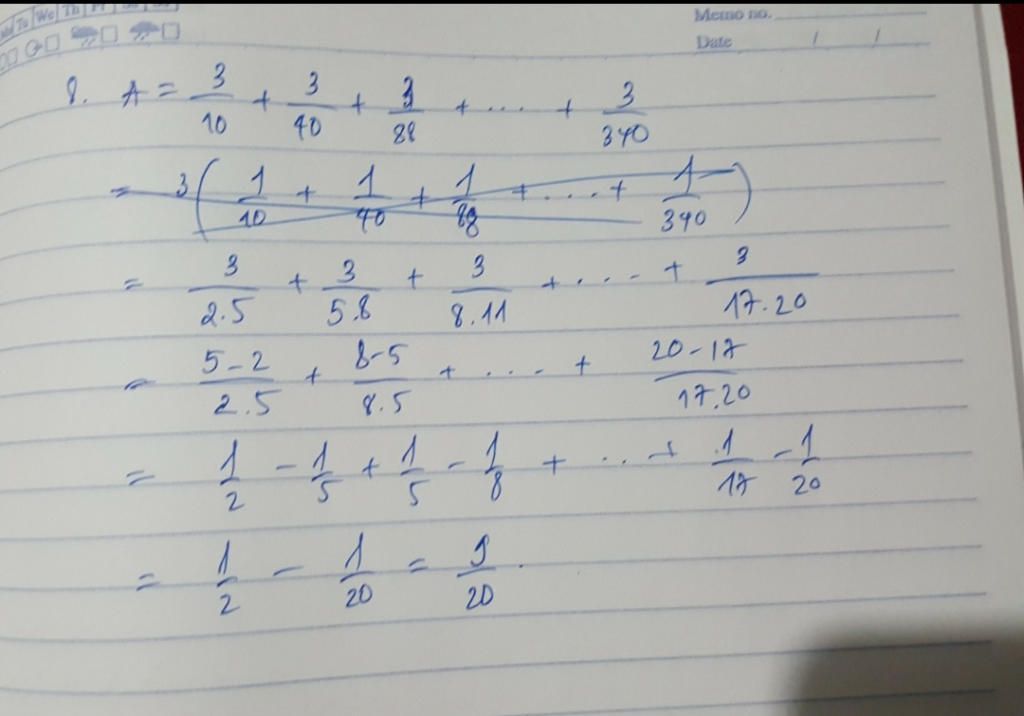 Tu We Th Fr
Memo no.
Date / /
8. A = 3/10 + 3/40 + 3/88 + .... + 3/340
= 3 ( 1/10 + 1/40 + 1/88 + .... + 1/340 )
= 3/2.5 + 3/5.8 + 3/8.11 + .... + 3/17.20
= 5-2/2.5 + 8-5/8.5 + .... + 20-17/17.20
= 1/2 - 1/5 + 1/5 - 1/8 + ... + 1/17 - 1/20
= 1/2 - 1/20 = 9/20.